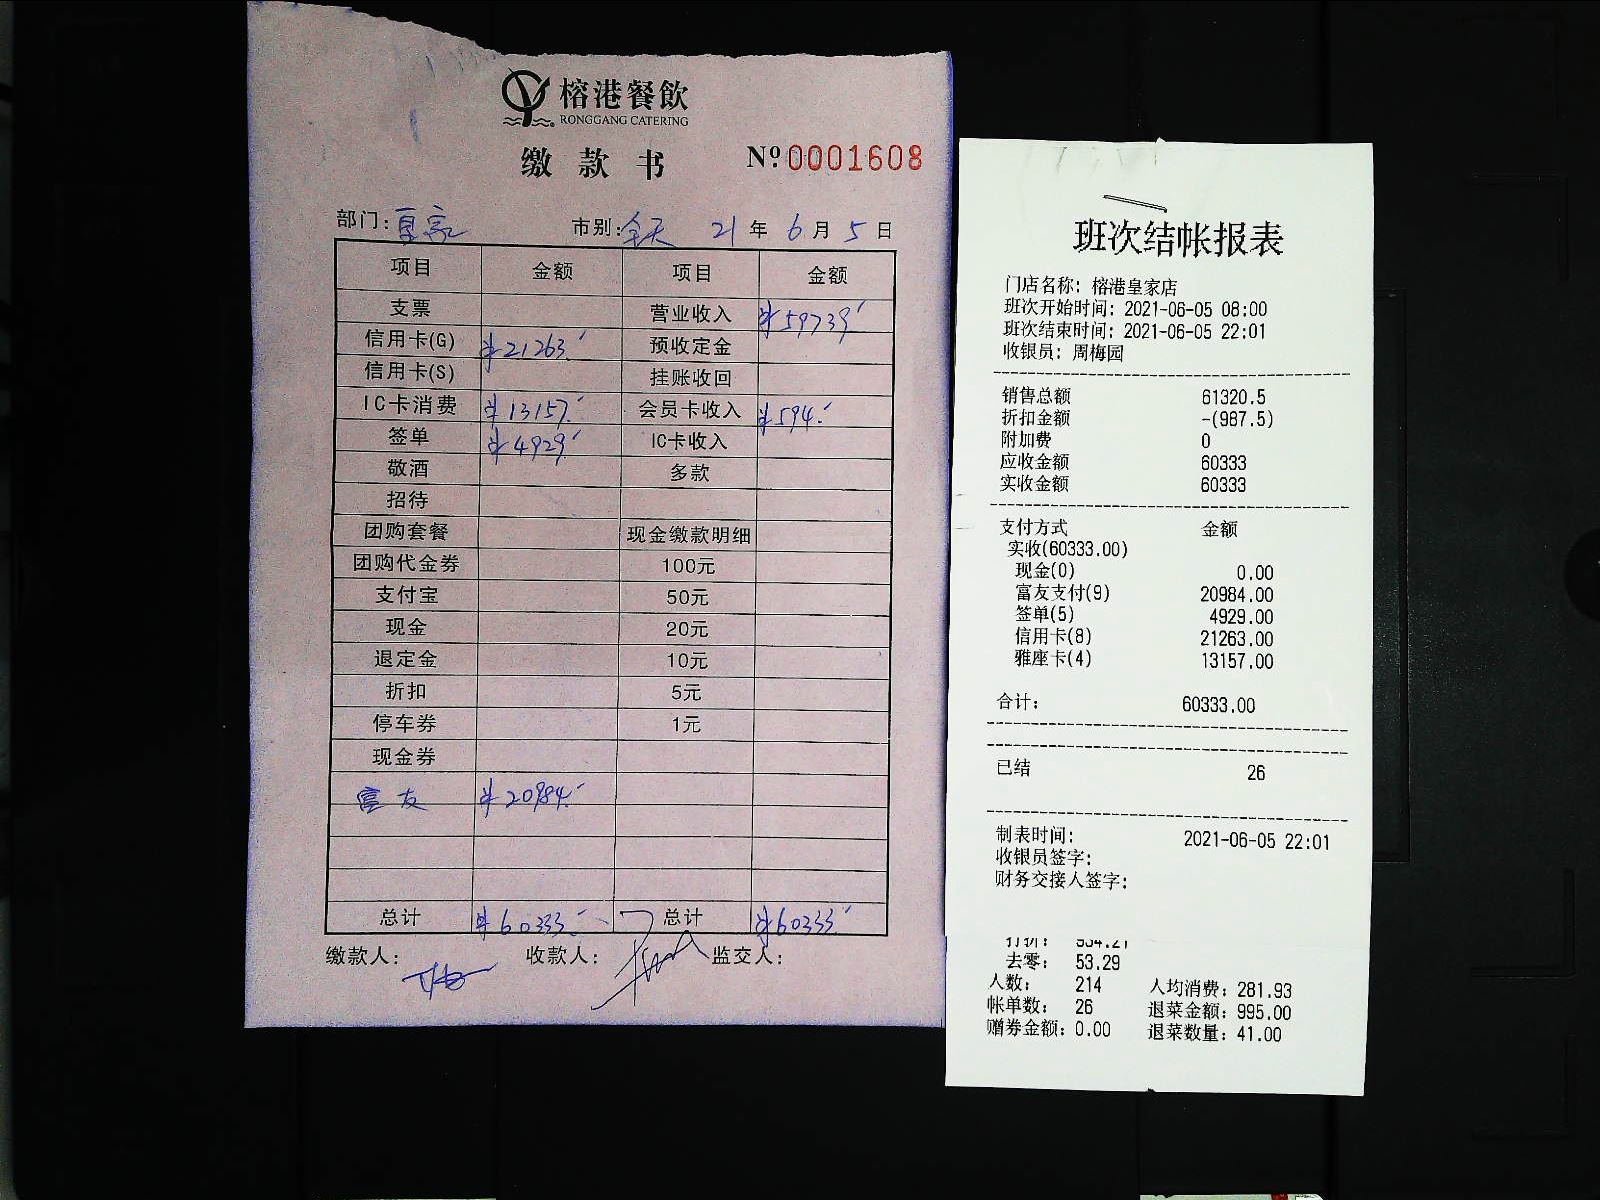 榕港餐飲
RONGGANG CATERING
缴款书 Nº 0001608
部门: 皇家 市别: 全天 21年6月5日
项目 金额 项目 金额
支票 营业收入 ¥59739.-
信用卡(G) ¥21263.- 预收定金
信用卡(S) 挂账收回
IC卡消费 ¥13157.- 会员卡收入 ¥594.-
签单 ¥4929.- IC卡收入
敬酒 多款
招待
团购套餐 现金缴款明细
团购代金券 100元
支付宝 50元
现金 20元
退定金 10元
折扣 5元
停车券 1元
现金券
富友 ¥20984.-
总计 ¥60333.- 总计 ¥60333.-
缴款人: 收款人: 监交人:
班次结帐报表
门店名称: 榕港皇家店
班次开始时间: 2021-06-05 08:00
班次结束时间: 2021-06-05 22:01
收银员: 周梅园
销售总额 61320.5
折扣金额 -(987.5)
附加费 0
应收金额 60333
实收金额 60333
支付方式 金额
实收(60333.00)
现金(0) 0.00
富友支付(9) 20984.00
签单(5) 4929.00
信用卡(8) 21263.00
雅座卡(4) 13157.00
合计: 60333.00
已结 26
制表时间: 2021-06-05 22:01
收银员签字:
财务交接人签字:
打折: 934.21
去零: 53.29
人数: 214 人均消费: 281.93
帐单数: 26 退菜金额: 995.00
赠券金额: 0.00 退菜数量: 41.00